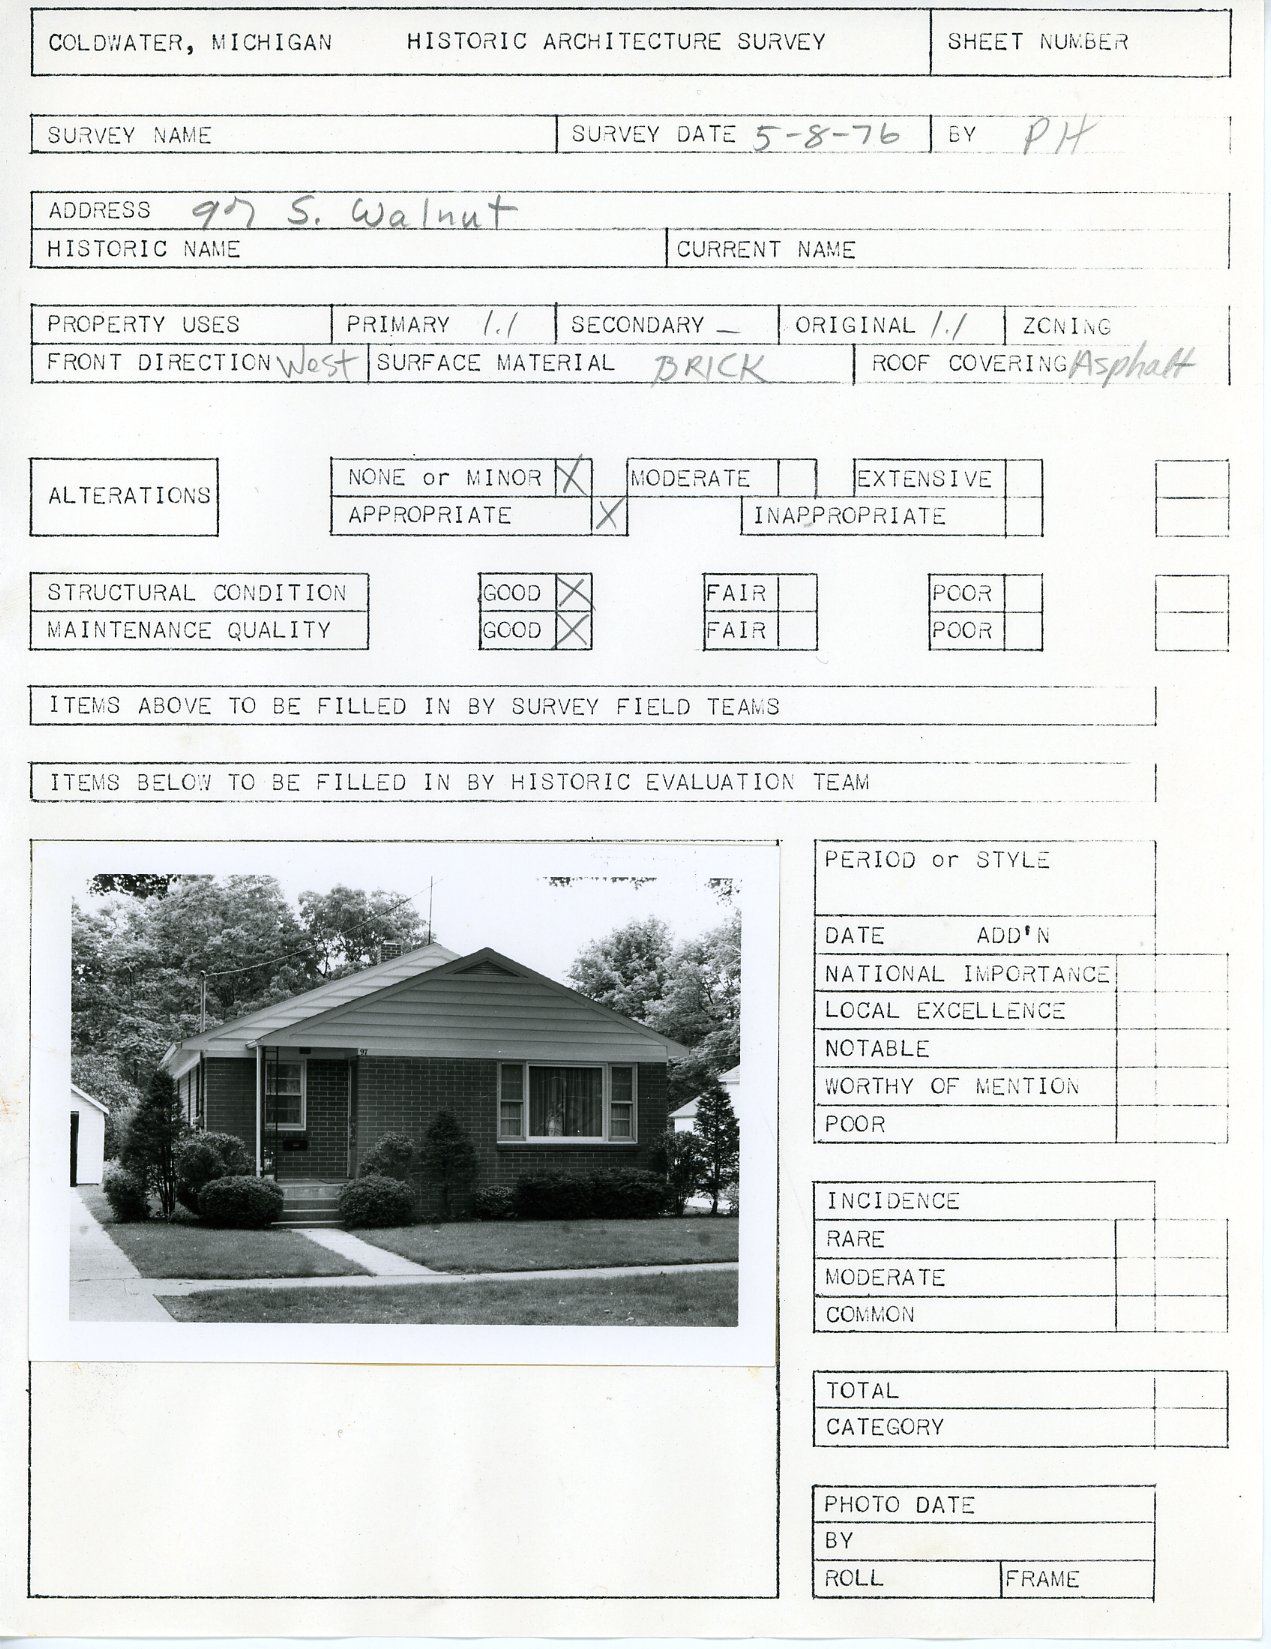 COLDWATER, MICHIGAN HISTORIC ARCHITECTURE SURVEY SHEET NUMBER
SURVEY NAME SURVEY DATE 5-8-76 BY PH
ADDRESS 97 S. Walnut
HISTORIC NAME CURRENT NAME
PROPERTY USES PRIMARY 1.1 SECONDARY — ORIGINAL 1.1 ZONING
FRONT DIRECTION West SURFACE MATERIAL BRICK ROOF COVERING Asphalt
NONE or MINOR X MODERATE EXTENSIVE
ALTERATIONS
APPROPRIATE X INAPPROPRIATE
STRUCTURAL CONDITION GOOD X FAIR POOR
MAINTENANCE QUALITY GOOD X FAIR POOR
ITEMS ABOVE TO BE FILLED IN BY SURVEY FIELD TEAMS
ITEMS BELOW TO BE FILLED IN BY HISTORIC EVALUATION TEAM
97
PERIOD or STYLE
DATE ADD'N
NATIONAL IMPORTANCE
LOCAL EXCELLENCE
NOTABLE
WORTHY OF MENTION
POOR
INCIDENCE
RARE
MODERATE
COMMON
TOTAL
CATEGORY
PHOTO DATE
BY
ROLL FRAME